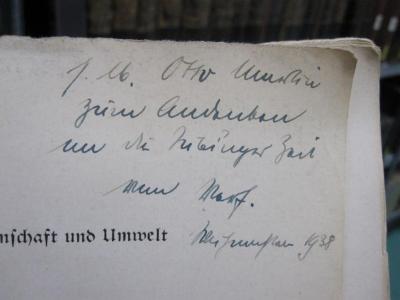 s. lb. Otto Martin
zum Andenken
an die Tübinger Zeit
vom Verf.
nschaft und Umwelt
Weihnachten 1938